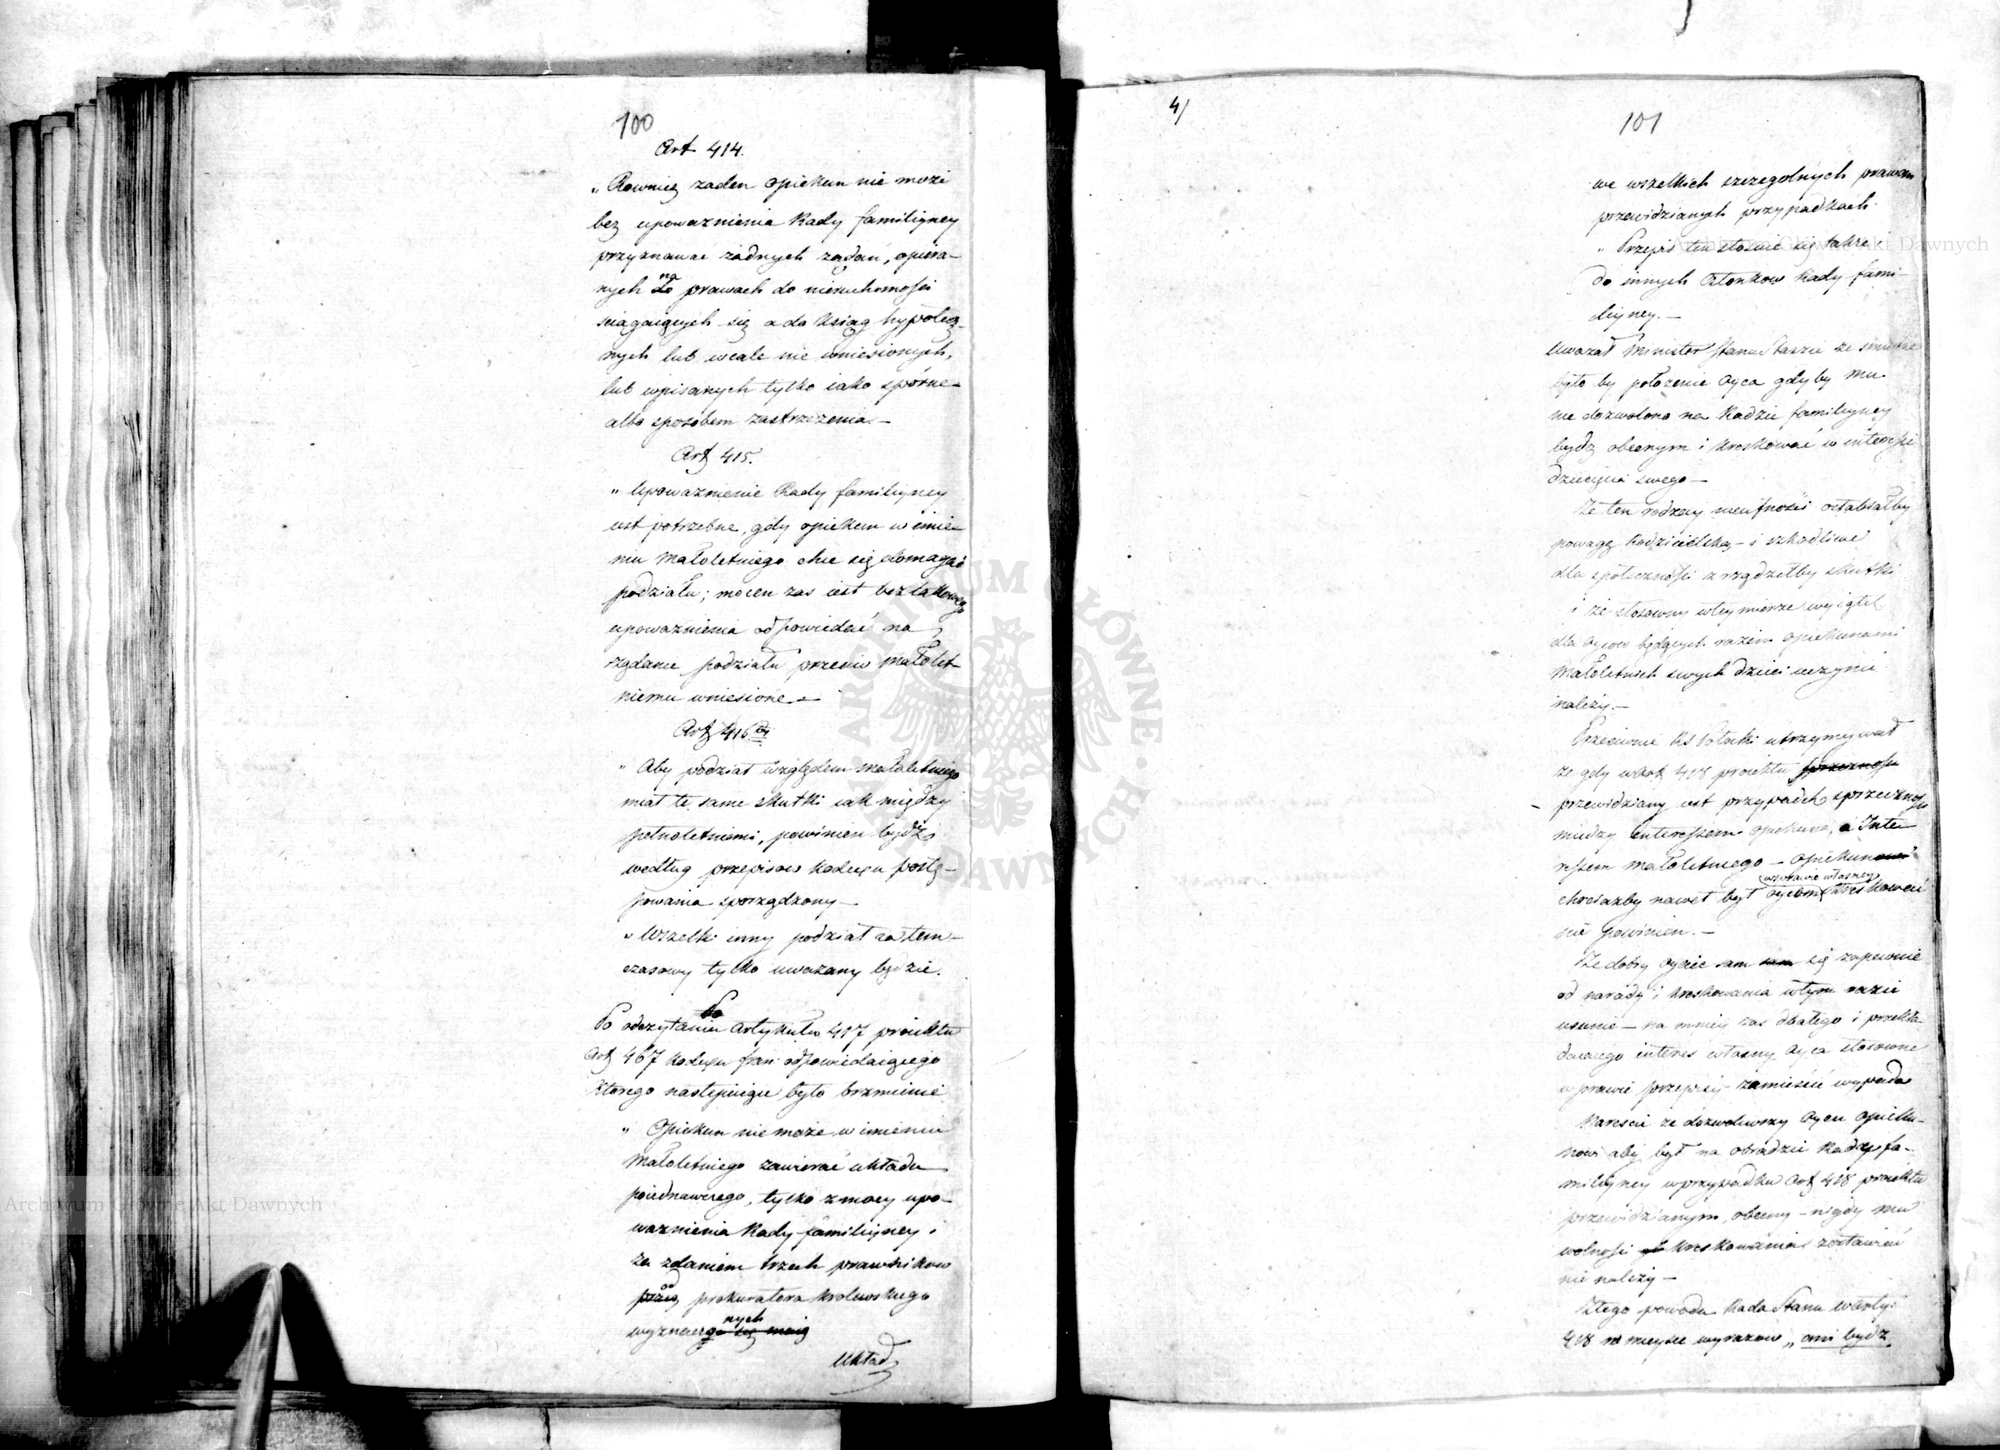 100
Art 414.
„Rownież żaden opiekun nie może
bez upoważnienia Rady familijney
przyznawać żadnych żądań, opiera-
nych na prawach do nieruchomości
sciągaiących się a do Ksiąg hypotecz-
nych lub wcale nie wniesionych,
lub wpisanych tylko iako spórne
albo sposóbem zastrzeżenia.—
Art 415.
„Upoważnienie Rady familijney
iest potrzebne, gdy opiekun w imie-
niu Małoletniego chce się domagać
podziału; mocen zas iest bez takowego
upoważnienia odpowiedać na
żądanie podziału przeciw Małolet
niemu wniesione.—
Art 416
„Aby podział względem małoletniego
miał te same skutki iak między
pełnoletniemi, powinien bydź
według przepisow kodexu postę-
powania sporządzony—
„Wszelki inny podział za tem-
czasowy tylko uważany będzie.
Po odczytaniu Artykułu 417 proiektu
Art 467 kodexu fran: odpowiadaiącego
ktorego następuiące było brzmienie
„Opiekun nie może w imieniu
Małoletniego zawierać układu
poiednawczego, tylko z mocy upo-
ważnienia Rady familijney i
za zdaniem trzech prawnikow
od prokuratora krolewskiego
wyznaczonych
Układ
4/
101
we wszelkich szczegolnych prawem
przewidzianych przypadkach.
„Przepis ten stosuie się także
do innych Członkow Rady fami-
lijney.—
Uważał Minister Stanu Staszic że smutne
było by położenie Oyca gdyby mu
nie dozwolono na Radzie familijney
bydź obecnym i kreskować w interessie
dziecięcia swego—
Że ten rodzay nieufności osłabiałby
powagę Rodzicielską— i szkodliwe
dla społeczności zrządziłby skutki
i że stosowny w tey mierze wyiątek
dla Oycow będących razem opiekunami
Małoletnich swych dzieci uczynić
należy.—
Przeciwnie Potocki utrzymywał
że gdy w Art 418 proiektu
przewidziany iest przypadek sprzeczności
miedzy Interessem opiekuna, a Inte-
ressem małoletniego— Opiekun
chociażby nawet był Oycem w sprawie własney kreskować
nie powinien.—
Że dobry oyciec sam się zapewnie
od narady i kreskowania w tym razie
usunie— na mniey zas dbałego i przekła-
daiącego interes własny Oyca stosowne
w prawie przepisy zamieścić wypada
Nareście że dozwoliwszy Oycu opieku-
nowi aby był na obradzie Rady fa-
milijney w przypadku Art 418 proiektu
przewidzianym, obecny— nigdy mu
wolności kreskowania zostawić
nie należy—
Z tego powodu Rada Stanu w Arty:
418 na mieysce wyrazow „ani bydź